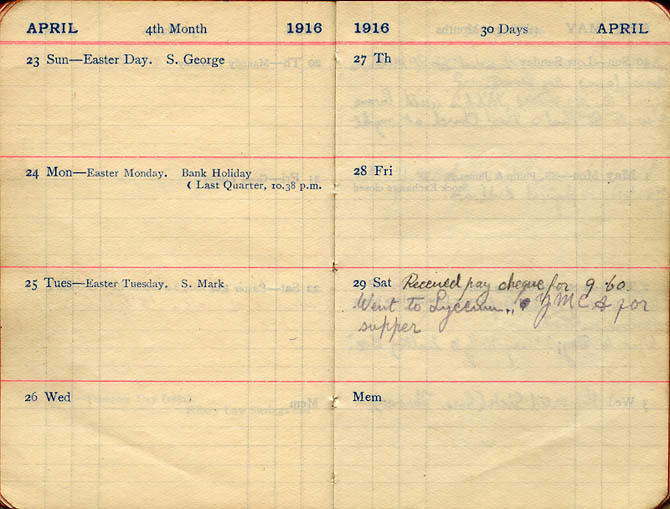 APRIL 4th Month 1916
23 Sun—Easter Day. S. George
24 Mon—Easter Monday. Bank Holiday
( Last Quarter, 10.38 p.m.
25 Tues—Easter Tuesday. S. Mark
26 Wed
1916 30 Days APRIL
27 Th
28 Fri
29 Sat Received pay cheque for 9.60
Went to Lyceum, YMCA for
supper
Mem